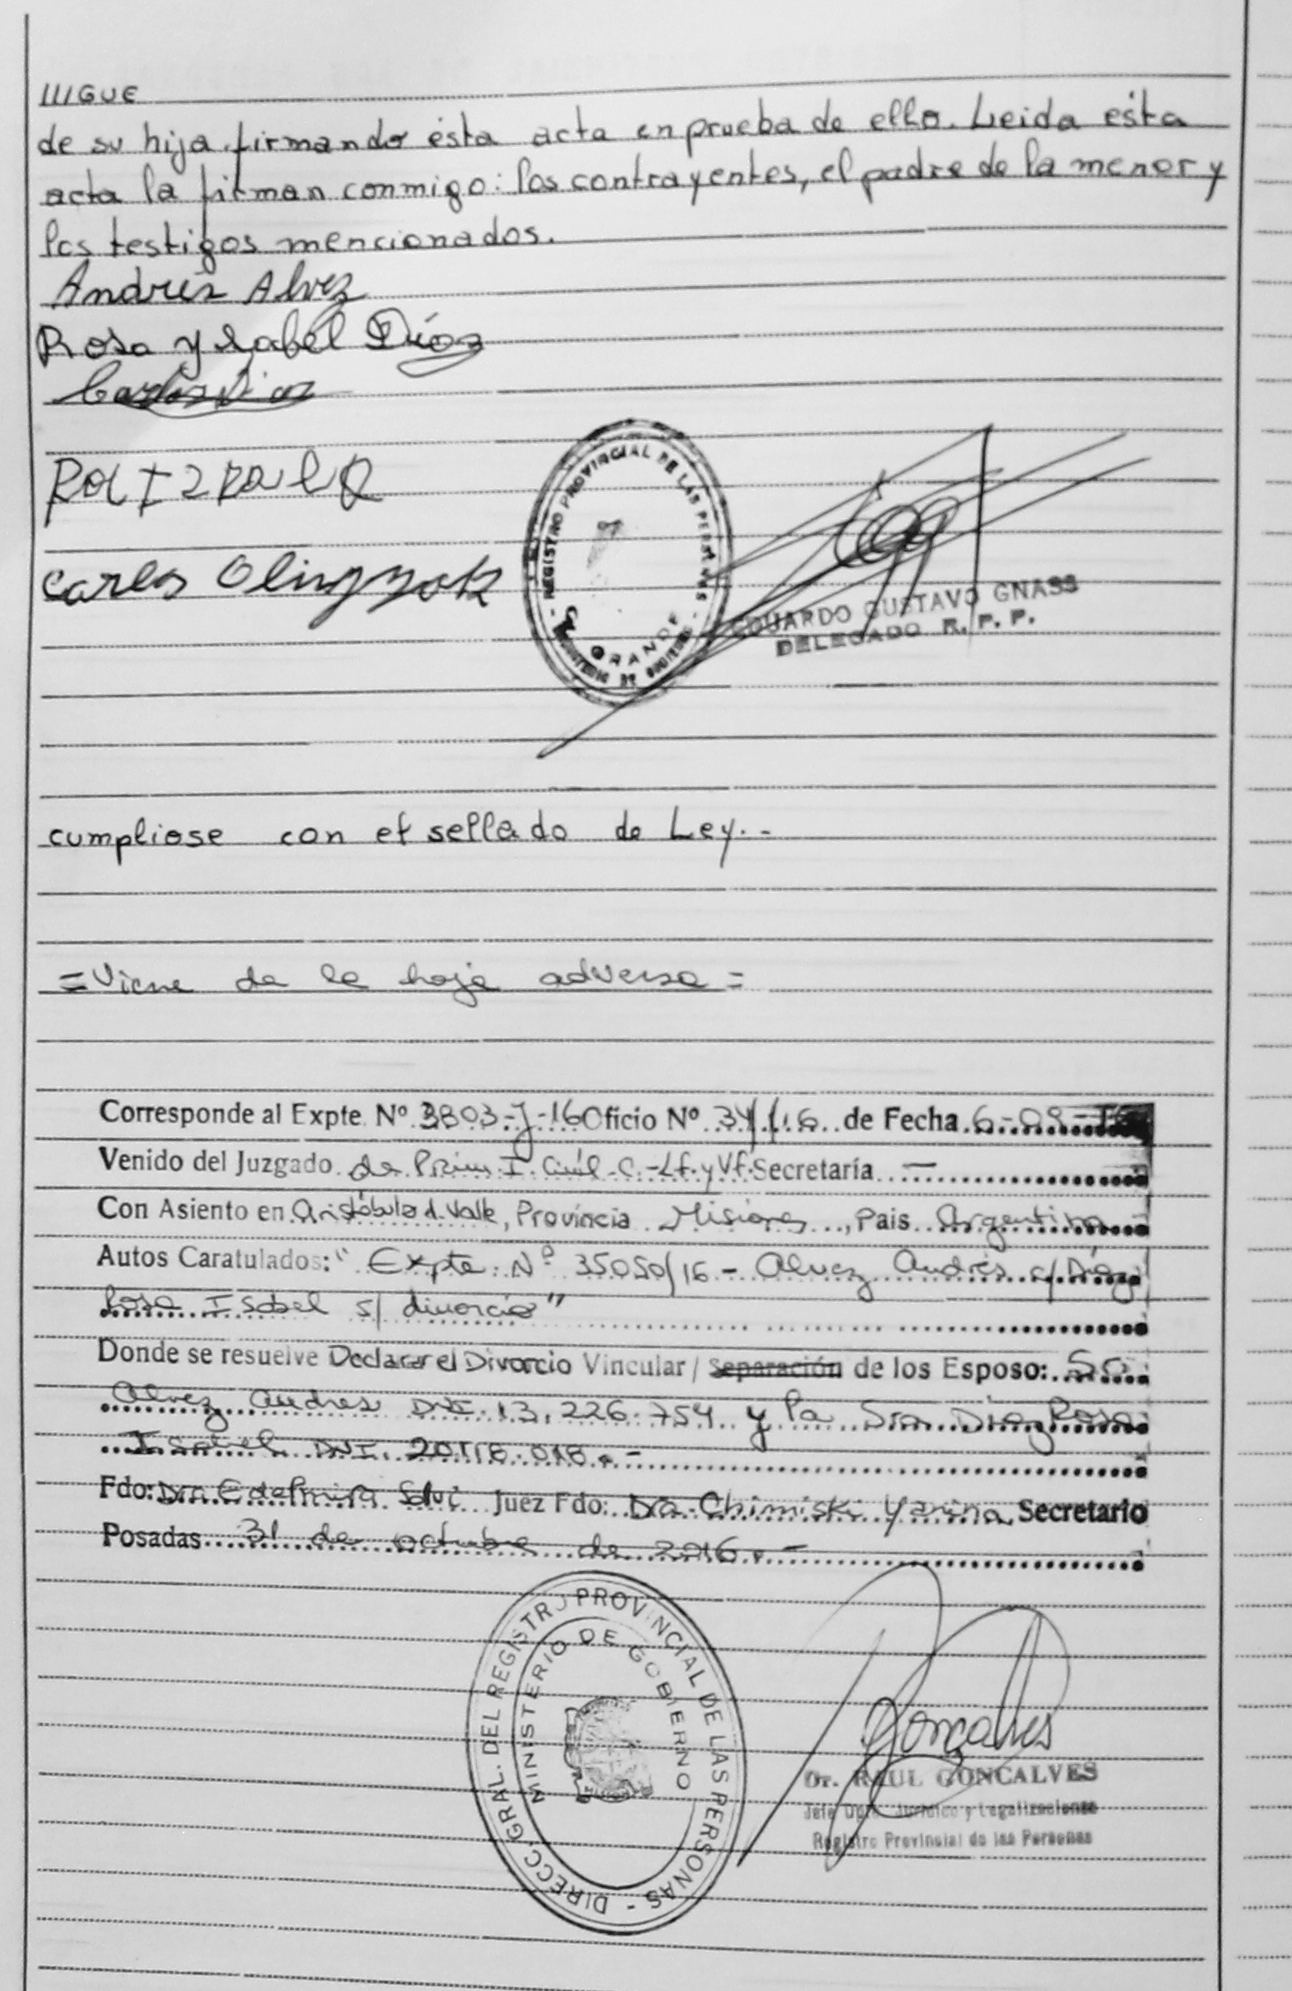 ///GUE
de su hija, firmando ésta acta en prueba de ello. Leida ésta
acta la firman conmigo: los contrayentes, el padre de la menor y
los testigos mencionados.
Andrés Alvez
Rosa Ysabel Díaz
Carlos Diaz
Carlos
REGISTRO PROVINCIAL DE LAS PERSONAS
GRANDE
EDUARDO GUSTAVO GNASS
DELEGADO R. P. P.
cumpliose con el sellado de Ley.-
=Viene de la hoja adversa=
Corresponde al Expte. Nº 3803-J-16 Oficio Nº 341/16 de Fecha 6-09-16
Venido del Juzgado de Prim. I. Civil-C.-Lf. y Vf. Secretaría —
Con Asiento en Aristóbulo d. Valle, Provincia Misiones, Pais Argentina
Autos Caratulados: "Expte. Nº 35050/16 - Alvez Andrés c/ Díaz
Rosa Isabel s/ divorcio"
Donde se resuelve Declarar el Divorcio Vincular / Separación de los Esposo: Sr.
Alvez Andres DNI 13.226.754 y la Sra Diaz Rosa
Isabel DNI. 20.118.018.-
Fdo: Dra Edelmira Juez Fdo: Dra. Chimiski Yanina Secretario
Posadas 31 de octubre de 2016.-
DIRECC. GRAL. DEL REGISTRO PROVINCIAL DE LAS PERSONAS -
MINISTERIO DE GOBIERNO
Goncalves
Dr. RAUL GONCALVES
Jefe Dpto. Jurídico y Legalizaciones
Registro Provincial de las Personas